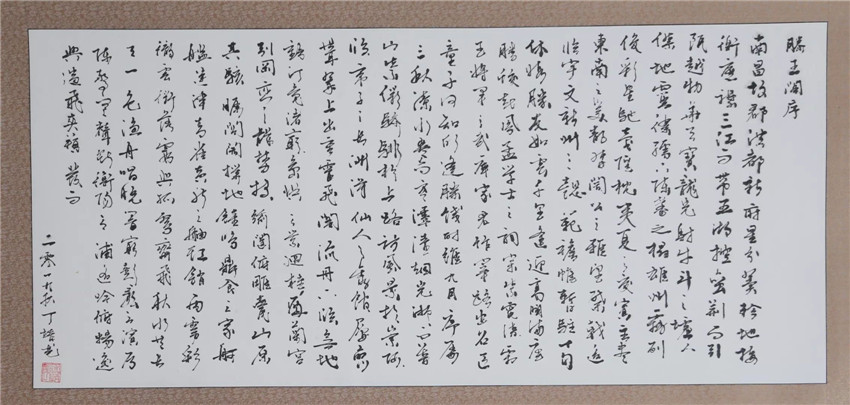 滕王阁序
南昌故郡洪都新府星分翼轸地接
衡庐襟三江而带五湖控蛮荆而引
瓯越物华天宝龙光射牛斗之墟人
杰地灵徐孺下陈蕃之榻雄州雾列
俊彩星驰台隍枕夷夏之交宾主尽
东南之美都督阎公之雅望棨戟遥
临宇文新州之懿范襜帷暂驻十旬
休暇胜友如云千里逢迎高朋满座
腾蛟起凤孟学士之词宗紫电清霜
王将军之武库家君作宰路出名区
童子何知躬逢胜饯时维九月序属
三秋潦水尽而寒潭清烟光凝而暮
山紫俨骖騑于上路访风景于崇阿
临帝子之长洲得仙人之旧馆层峦
耸翠上出重霄飞阁流丹下临无地
鹤汀凫渚穷岛屿之萦回桂殿兰宫
列冈峦之体势披绣闼俯雕甍山原
其骇瞩闾阎扑地钟鸣鼎食之家舸
舰迷津青雀黄龙之舳虹销雨霁彩
彻云衢落霞与孤鹜齐飞秋水共长
天一色渔舟唱晚响穷彭蠡之滨雁
阵惊寒声断衡阳之浦遥吟俯畅逸
兴遄飞爽籁发而
二零一九秋丁培